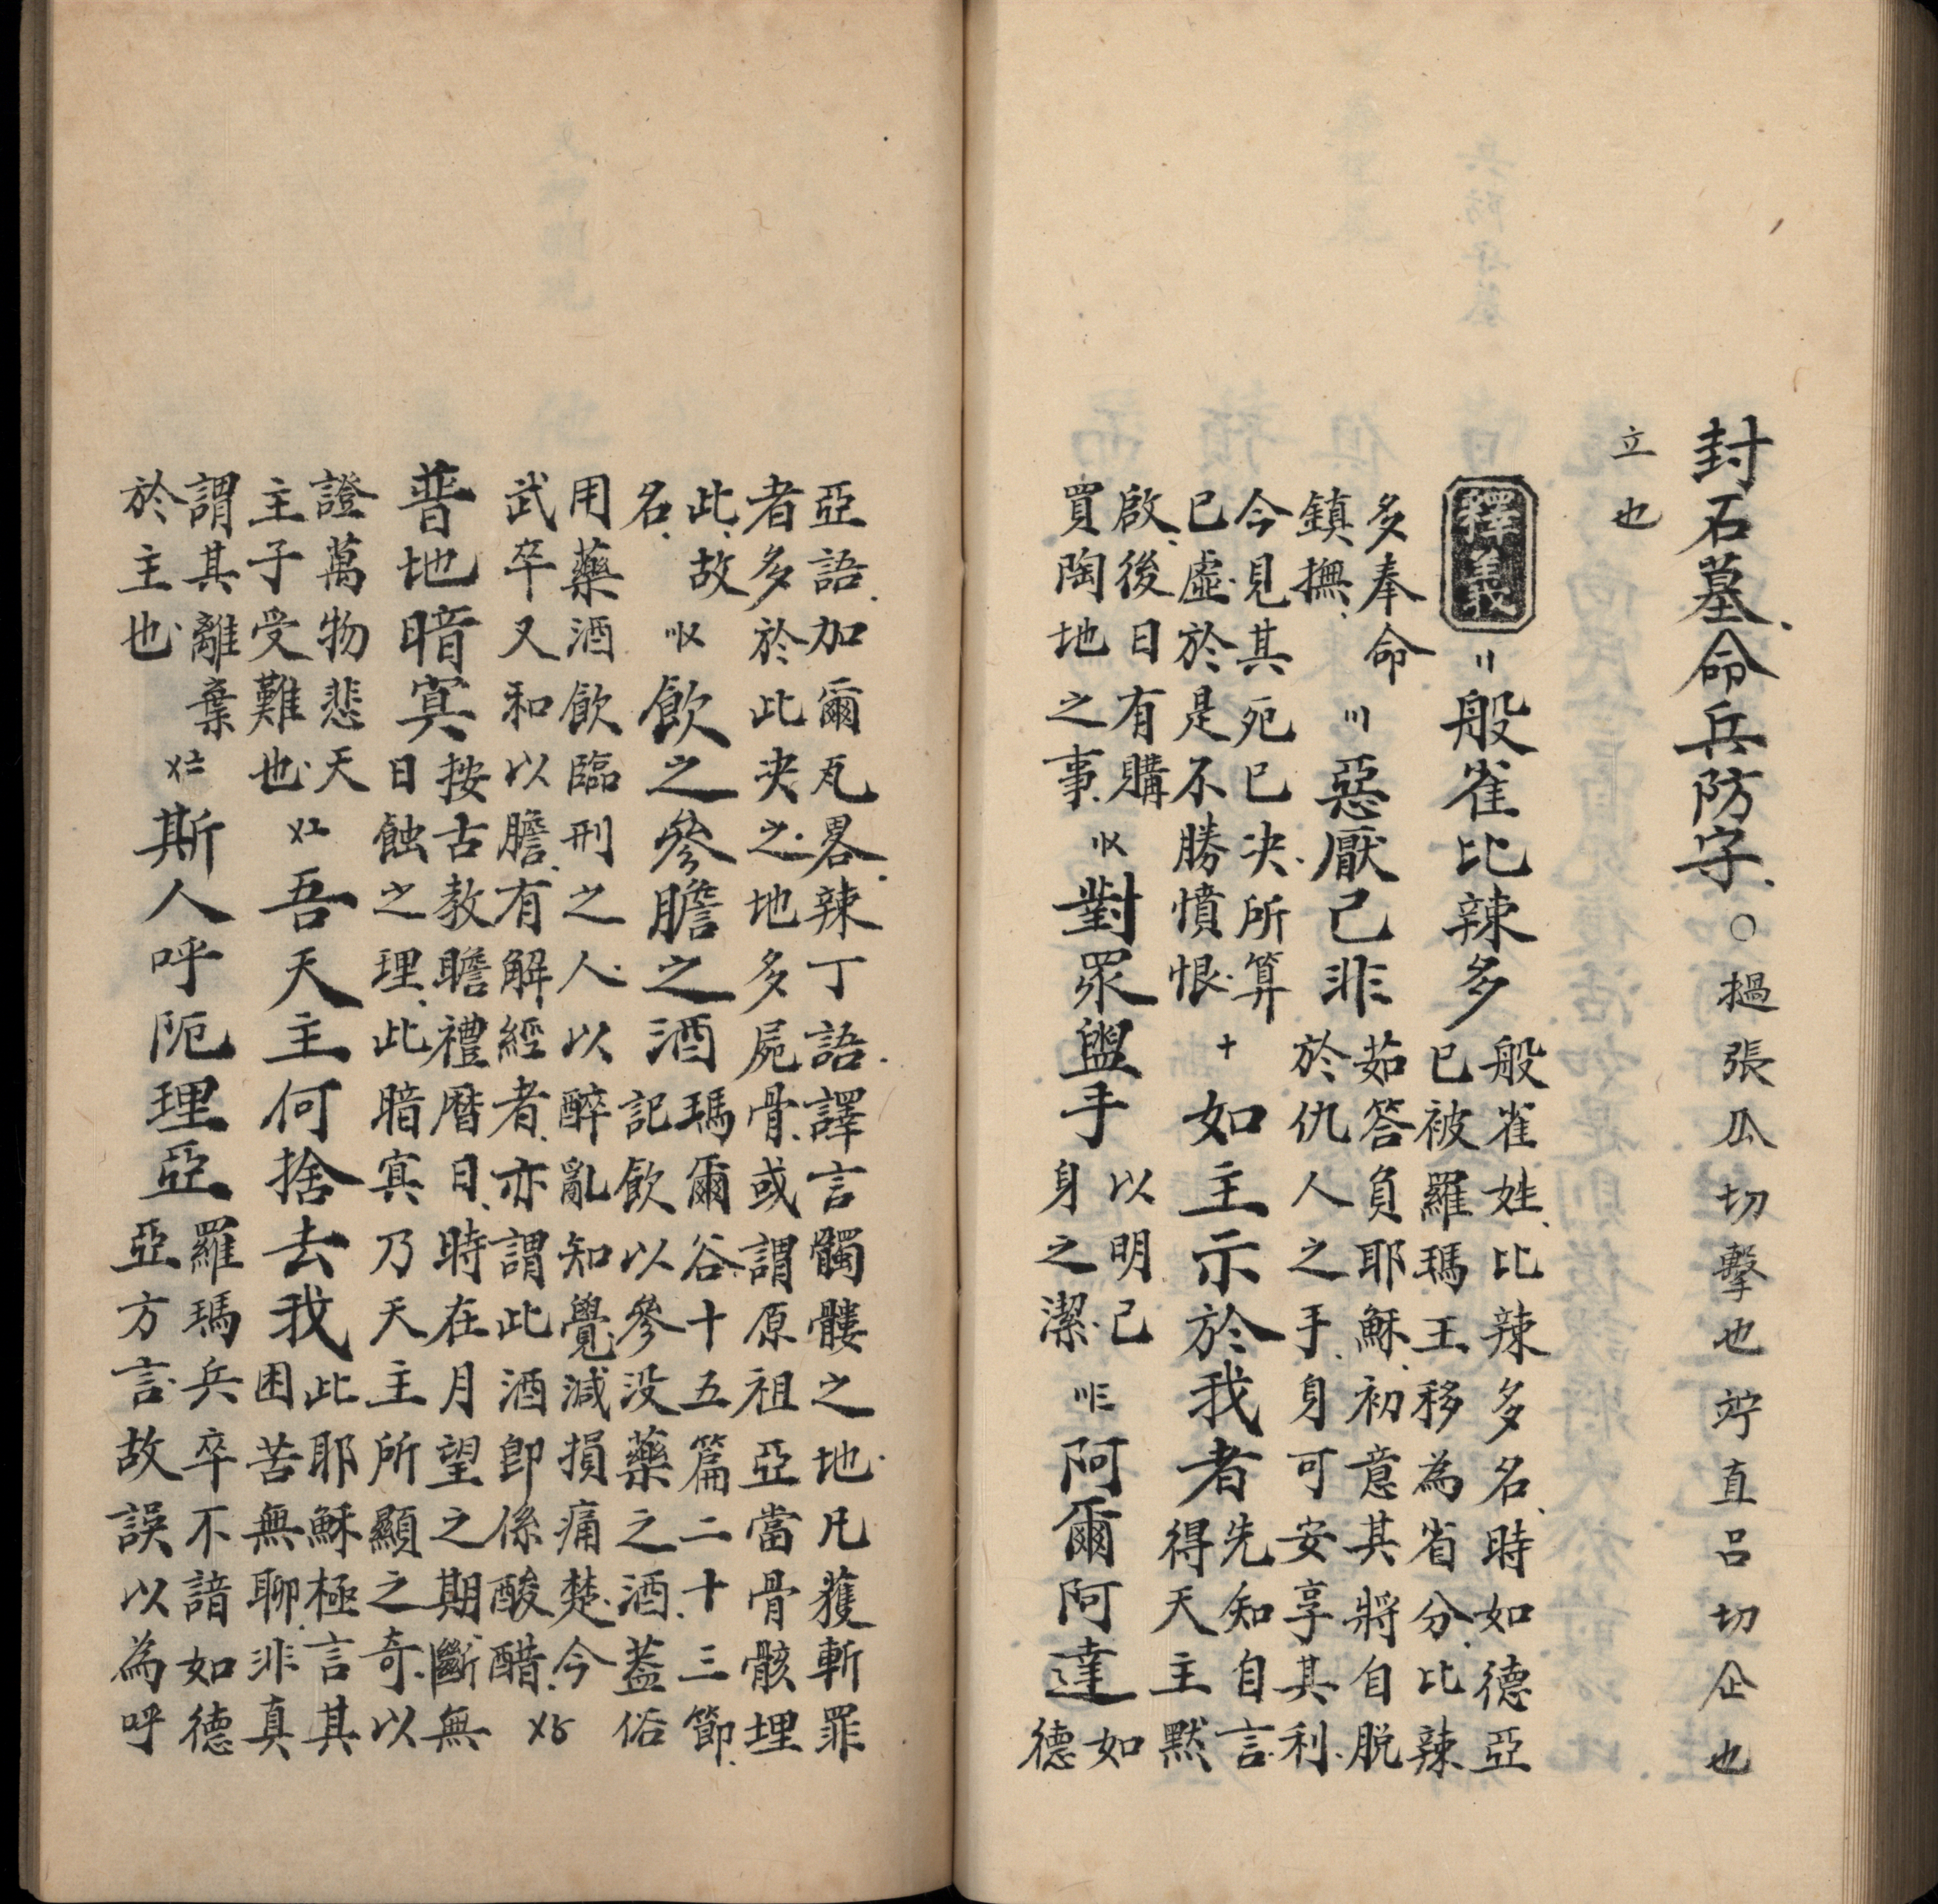 封石墓、命兵防守、○撾張瓜切擊也竚直呂切企也
立也
釋義 〢〢 般雀比辣多
般雀姓、比辣多名、時如德亞
已被羅瑪王移為省分、比辣
多奉命
鎮撫、
〣 惡厭己非
茹答負耶穌、初意其將自脫
於仇人之手、身可安享其利、
今見其死已决、所算
已虛、於是不勝憤恨、
十 如主示於我者
先知自言、
得天主默
啟、後日有購
買陶地之事、
〢〤 對眾盥手
以明己
身之潔、
〣三 阿爾阿達
如
德
亞語、加爾瓦畧、辣丁語、譯言髑髏之地、凡獲斬罪
者多於此决之、地多屍骨、或謂原祖亞當骨骸埋
此、故
名、
〣〤 飲之參膽之酒
瑪爾谷十五篇二十三節、
記飲以參没藥之酒、蓋俗
用藥酒飲臨刑之人、以醉亂知覺、減損痛楚、今
武卒又和以膽、有解經者、亦謂此酒即係酸醋、 〤〥
普地暗冥
按古教瞻禮曆日、時在月望之期、斷無
日蝕之理、此暗冥乃天主所顯之奇、以
證萬物悲天
主子受難也、
〤〦 吾天主何捨去我
此耶穌極言其
困苦無聊、非真
謂其離棄
於主也、
〤〧 斯人呼阨理亞
羅瑪兵卒不諳如德
亞方言、故誤以為呼